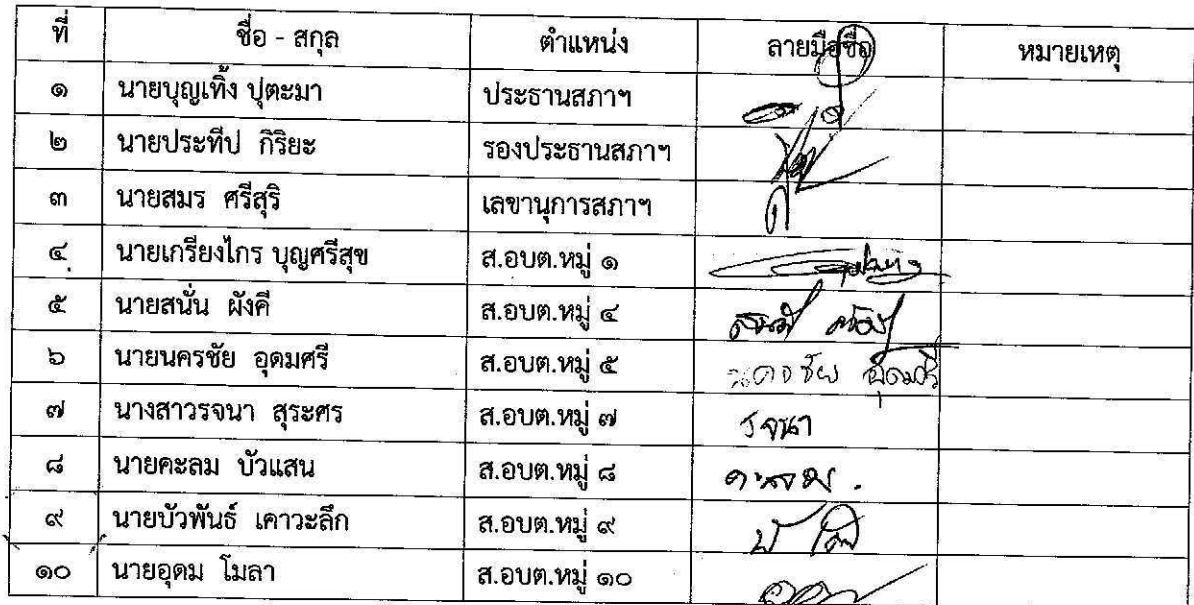 ที่ ชื่อ - สกุล ตำแหน่ง ลายมือชื่อ หมายเหตุ
๑ นายบุญเทิ้ง ปุตะมา ประธานสภาฯ
๒ นายประทีป กิริยะ รองประธานสภาฯ
๓ นายสมร ศรีสุริ เลขานุการสภาฯ
๔ นายเกรียงไกร บุญศรีสุข ส.อบต.หมู่ ๑
๕ นายสนั่น ผังคี ส.อบต.หมู่ ๔
๖ นายนครชัย อุดมศรี ส.อบต.หมู่ ๕ นครชัย อุดมศรี
๗ นางสาวรจนา สุระศร ส.อบต.หมู่ ๗ รจนา
๘ นายคะลม บัวแสน ส.อบต.หมู่ ๘ คะลม
๙ นายบัวพันธ์ เคาวะลึก ส.อบต.หมู่ ๙
๑๐ นายอุดม โมลา ส.อบต.หมู่ ๑๐